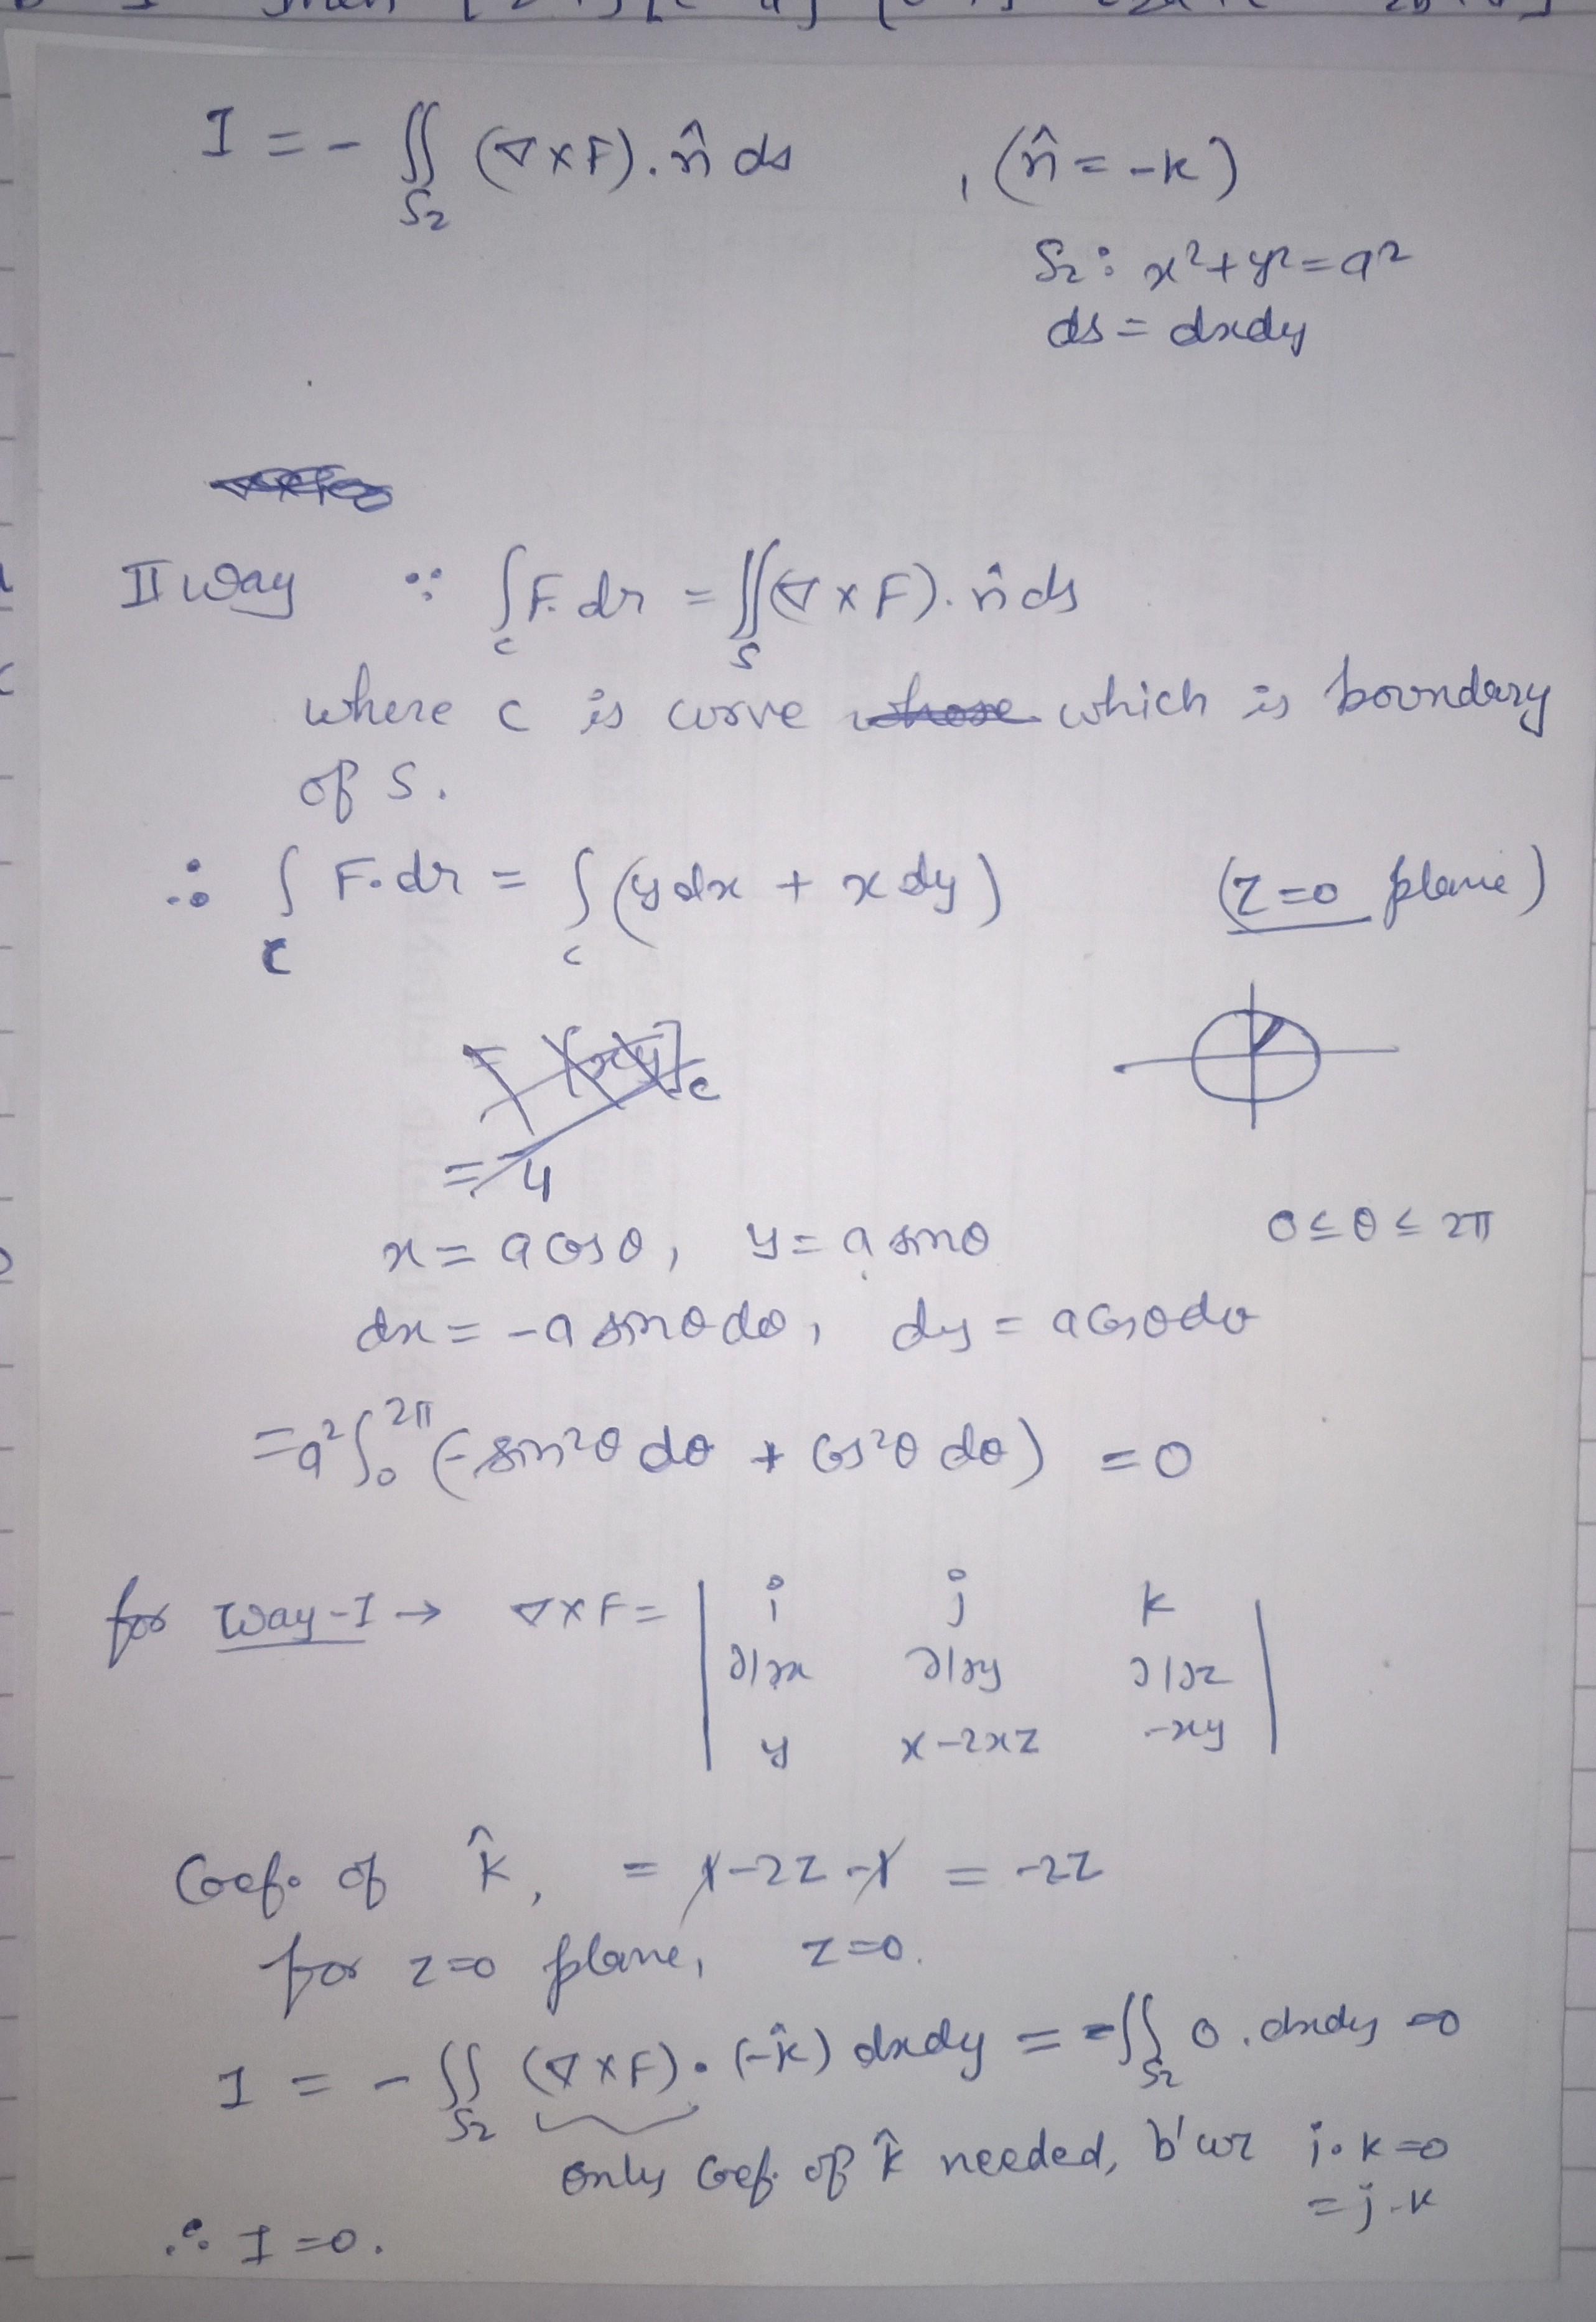 I = - ∬_{S₂} (∇×F).n̂ ds , (n̂ = -k)
S₂: x²+y²=a²
ds = dxdy
II way ∵ ∫_c F.dr = ∬_S (∇×F).n̂ ds
where c is curve which is boundary
of S.
∴ ∫_c F.dr = ∫_c (ydx + xdy) (z=0 plane)
= 4
x = a cosθ, y = a sinθ 0≤θ≤2π
dx = -a sinθdθ, dy = a cosθdθ
= a² ∫₀^{2π} (-sin²θ dθ + cos²θ dθ) = 0
for Way-I → ∇×F = | i j k
∂/∂x ∂/∂y ∂/∂z
y x-2xz -xy |
Coef. of k̂, = 1-2z-1 = -2z
for z=0 plane, z=0.
I = - ∬_{S₂} (∇×F).(-k̂) dxdy = -∬_{S₂} 0.dxdy =0
only Coef. of k̂ needed, b'coz i.k=0
= j.k
∴ I = 0.